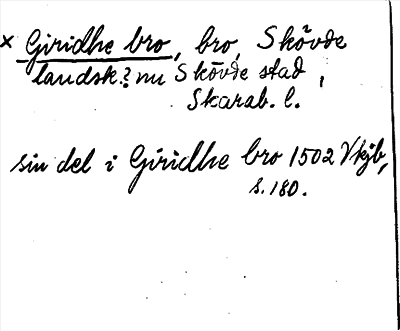 × Giridhe bro, bro, Skövde
landsk.? nu Skövde stad,
Skarab. l.
sin del i Giridhe bro 1502 Vkjb,
s. 180.